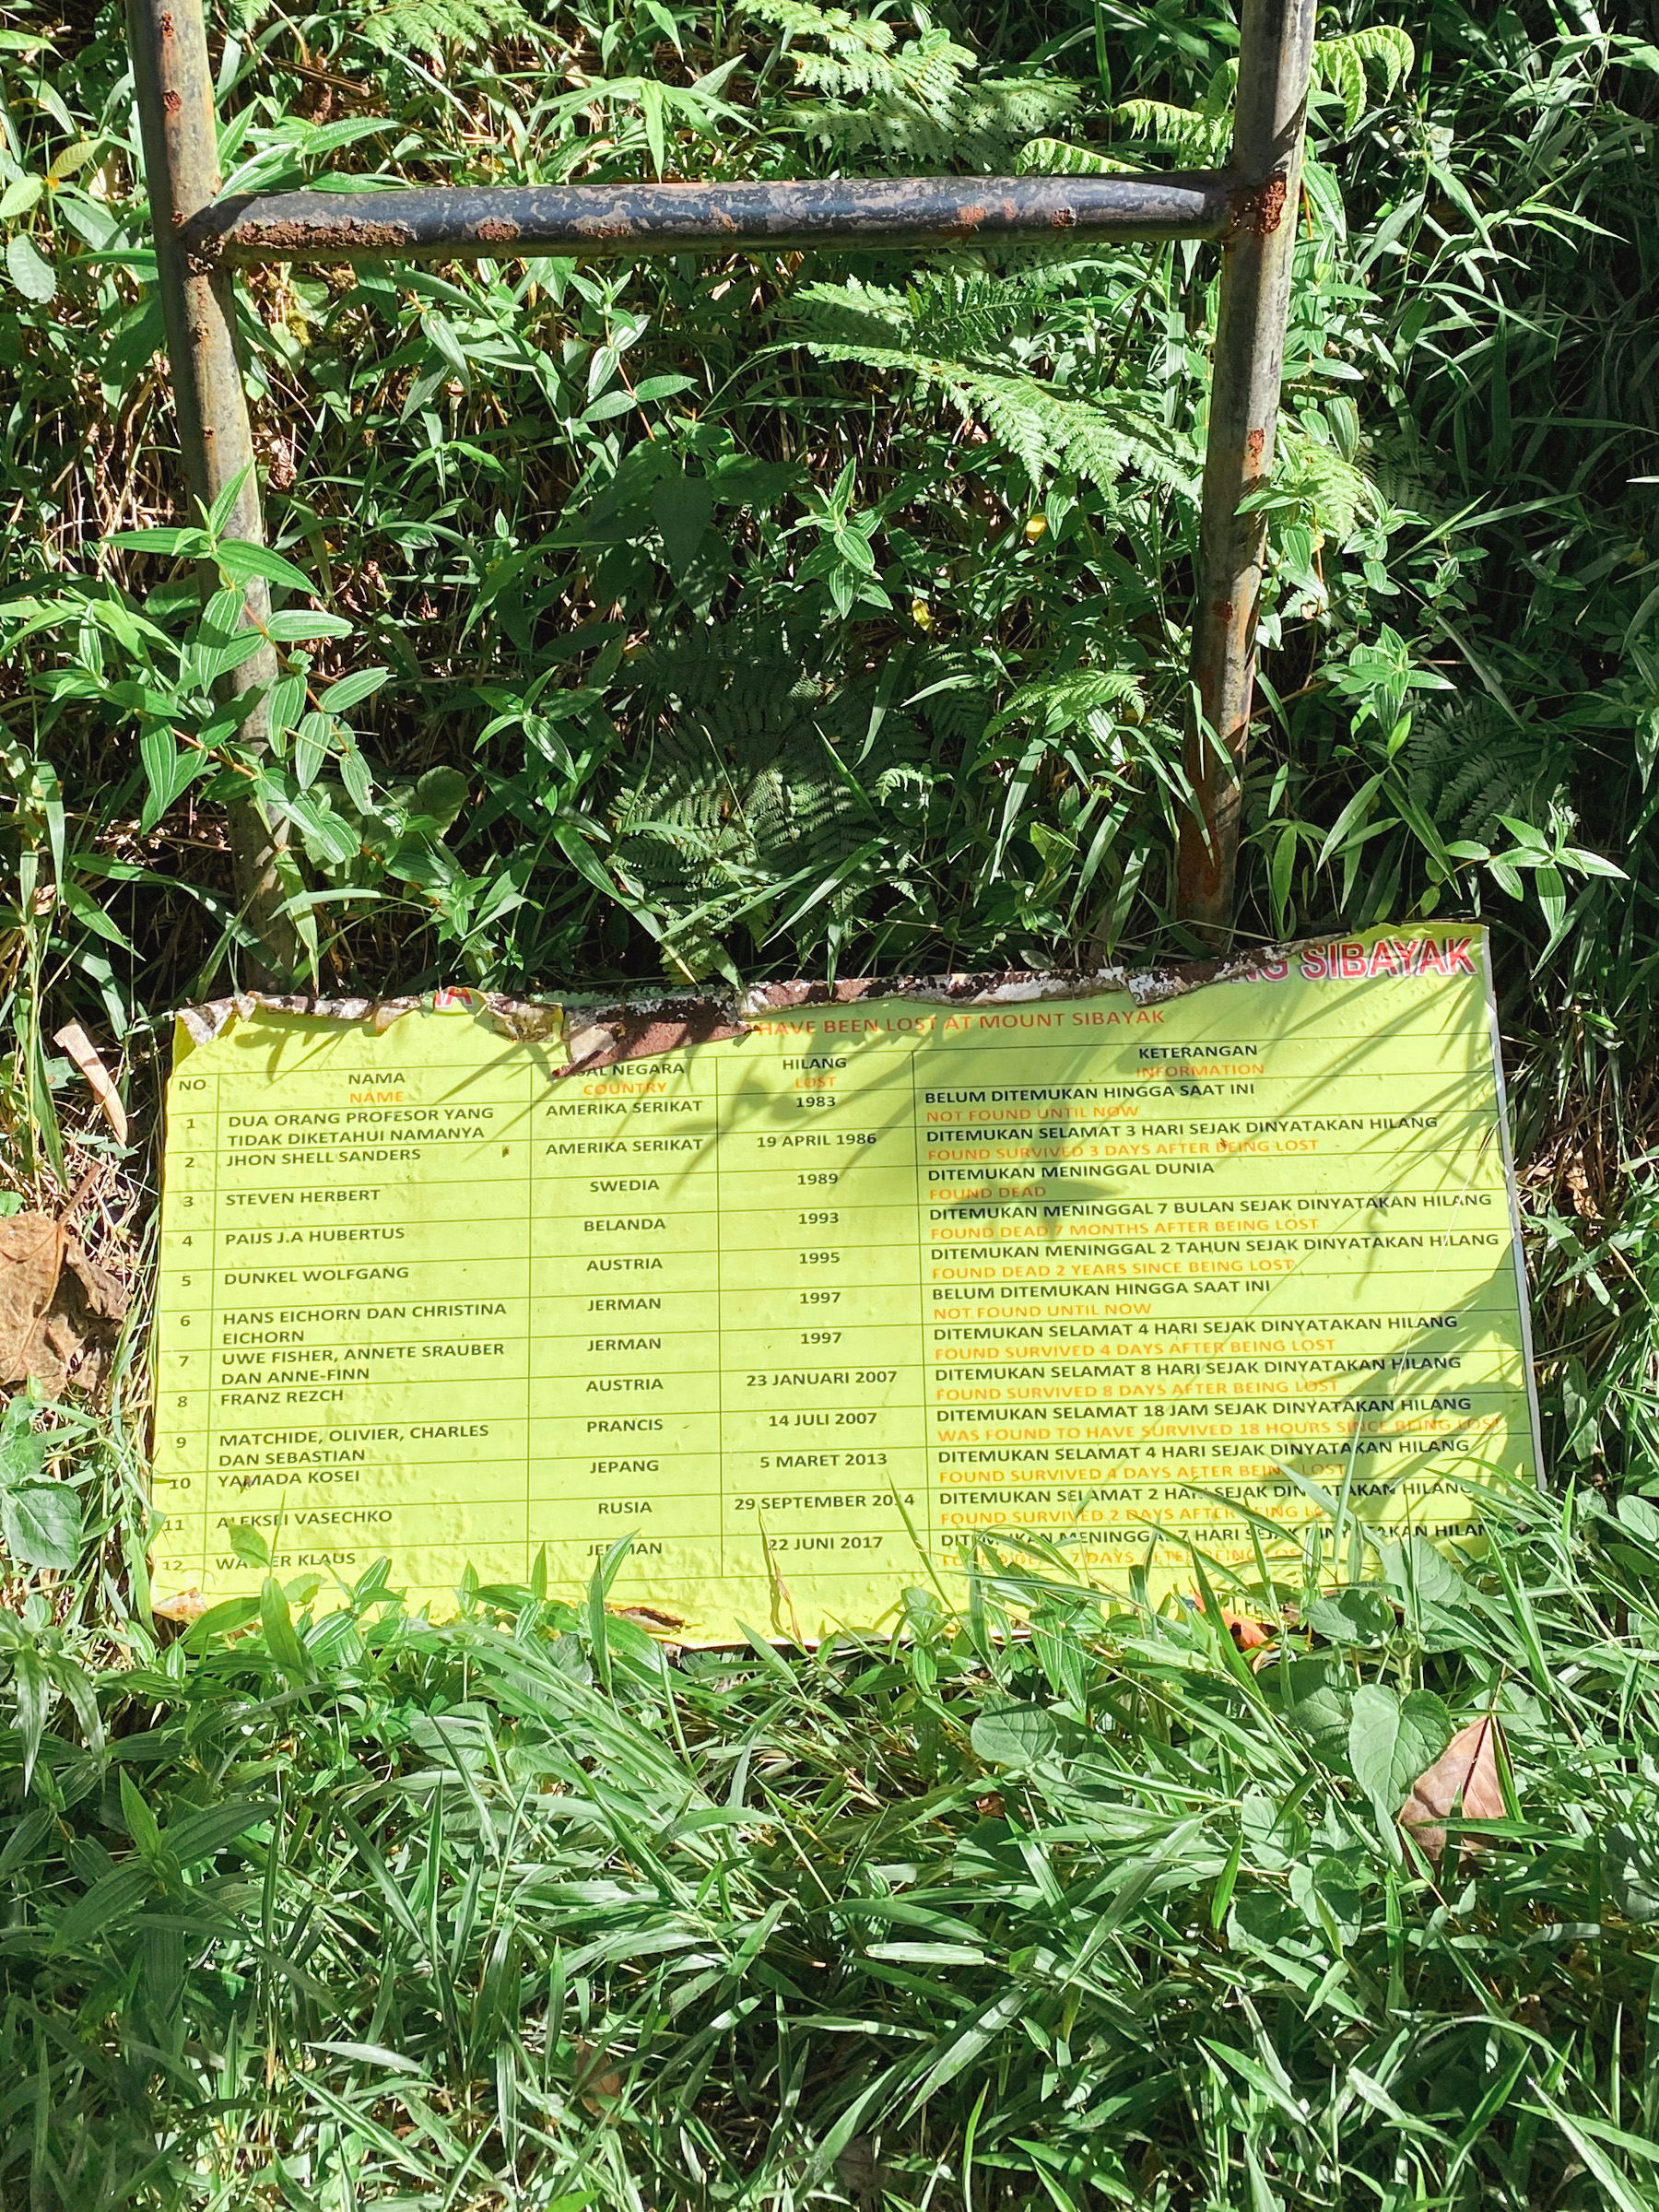 NG SIBAYAK
HAVE BEEN LOST AT MOUNT SIBAYAK
NO NAMA NEGARA HILANG KETERANGAN
NAME COUNTRY LOST INFORMATION
1 DUA ORANG PROFESOR YANG AMERIKA SERIKAT 1983 BELUM DITEMUKAN HINGGA SAAT INI
TIDAK DIKETAHUI NAMANYA NOT FOUND UNTIL NOW
2 JHON SHELL SANDERS AMERIKA SERIKAT 19 APRIL 1986 DITEMUKAN SELAMAT 3 HARI SEJAK DINYATAKAN HILANG
FOUND SURVIVED 3 DAYS AFTER BEING LOST
3 STEVEN HERBERT SWEDIA 1989 DITEMUKAN MENINGGAL DUNIA
FOUND DEAD
4 PAIJS J.A HUBERTUS BELANDA 1993 DITEMUKAN MENINGGAL 7 BULAN SEJAK DINYATAKAN HILANG
FOUND DEAD 7 MONTHS AFTER BEING LOST
5 DUNKEL WOLFGANG AUSTRIA 1995 DITEMUKAN MENINGGAL 2 TAHUN SEJAK DINYATAKAN HILANG
FOUND DEAD 2 YEARS SINCE BEING LOST
6 HANS EICHORN DAN CHRISTINA JERMAN 1997 BELUM DITEMUKAN HINGGA SAAT INI
EICHORN NOT FOUND UNTIL NOW
7 UWE FISHER, ANNETE SRAUBER JERMAN 1997 DITEMUKAN SELAMAT 4 HARI SEJAK DINYATAKAN HILANG
DAN ANNE-FINN FOUND SURVIVED 4 DAYS AFTER BEING LOST
8 FRANZ REZCH AUSTRIA 23 JANUARI 2007 DITEMUKAN SELAMAT 8 HARI SEJAK DINYATAKAN HILANG
FOUND SURVIVED 8 DAYS AFTER BEING LOST
9 MATCHIDE, OLIVIER, CHARLES PRANCIS 14 JULI 2007 DITEMUKAN SELAMAT 18 JAM SEJAK DINYATAKAN HILANG
DAN SEBASTIAN WAS FOUND TO HAVE SURVIVED 18 HOURS SINCE BEING LOST
10 YAMADA KOSEI JEPANG 5 MARET 2013 DITEMUKAN SELAMAT 4 HARI SEJAK DINYATAKAN HILANG
FOUND SURVIVED 4 DAYS AFTER BEING LOST
11 ALEKSEI VASECHKO RUSIA 29 SEPTEMBER 2014 DITEMUKAN SELAMAT 2 HARI SEJAK DINYATAKAN HILANG
FOUND SURVIVED 2 DAYS AFTER BEING LOST
12 KLAUS JERMAN 22 JUNI 2017 DITEMUKAN MENINGGAL 7 HARI SEJAK DINYATAKAN HILANG
FOUND DEAD 7 DAYS AFTER BEING LOST